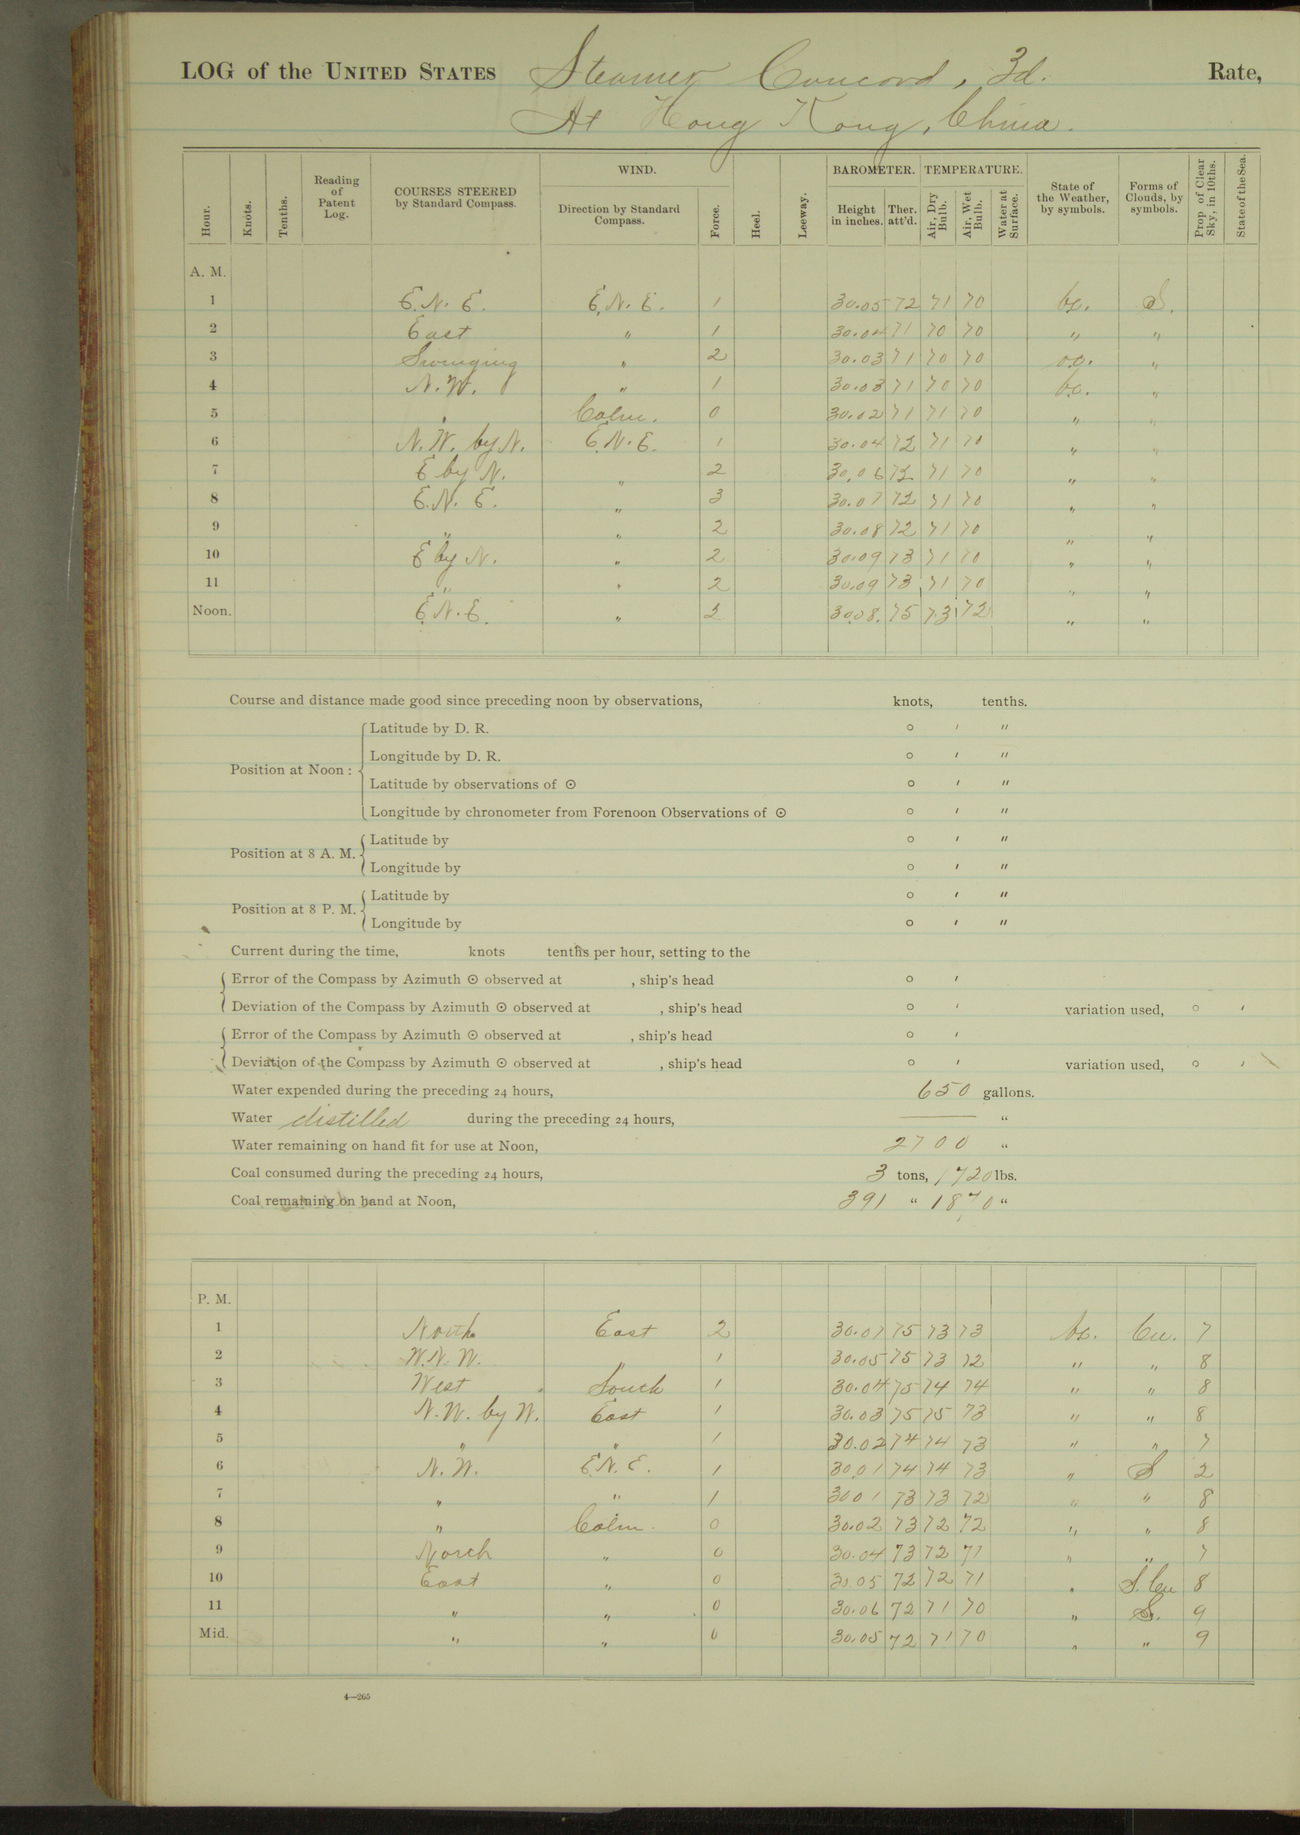 LOG of the UNITED STATES Steamer Concord, 3d. Rate,
At Hong Kong, China.
Hour. Knots. Tenths. Reading of Patent Log. COURSES STEERED by Standard Compass. WIND. Direction by Standard Compass. Force. Heel. Leeway. BAROMETER. Height in inches. Ther. att'd. TEMPERATURE. Air, Dry Bulb. Air, Wet Bulb. Water at Surface. State of the Weather, by symbols. Forms of Clouds, by symbols. Prop. of Clear Sky, in 10ths. State of the Sea.
A. M.
1 E.N.E. E.N.E. 1 30.05 72 71 70 bc. S.
2 East " 1 30.04 71 70 70 " "
3 Swinging " 2 30.03 71 70 70 o.c. "
4 N.W. " 1 30.03 71 70 70 bc. "
5 " Calm. 0 30.02 71 71 70 " "
6 N.W. by N. E.N.E. 1 30.04 72 71 70 " "
7 E by N. " 2 30.06 72 71 70 " "
8 E.N.E. " 3 30.07 72 71 70 " "
9 " " 2 30.08 72 71 70 " "
10 E by N. " 2 30.09 73 71 70 " "
11 " " 2 30.09 73 71 70 " "
Noon. E.N.E. " 2 30.08. 75 73 72 " "
Course and distance made good since preceding noon by observations, knots, tenths.
Position at Noon: Latitude by D. R. ° ′ ″
Longitude by D. R. ° ′ ″
Latitude by observations of ☉ ° ′ ″
Longitude by chronometer from Forenoon Observations of ☉ ° ′ ″
Position at 8 A. M. Latitude by ° ′ ″
Longitude by ° ′ ″
Position at 8 P. M. Latitude by ° ′ ″
Longitude by ° ′ ″
Current during the time, knots tenths per hour, setting to the
Error of the Compass by Azimuth ☉ observed at , ship's head ° ′
Deviation of the Compass by Azimuth ☉ observed at , ship's head ° ′ variation used, ° ′
Error of the Compass by Azimuth ☉ observed at , ship's head ° ′
Deviation of the Compass by Azimuth ☉ observed at , ship's head ° ′ variation used, ° ′
Water expended during the preceding 24 hours, 650 gallons.
Water distilled during the preceding 24 hours, — "
Water remaining on hand fit for use at Noon, 2700 "
Coal consumed during the preceding 24 hours, 3 tons, 1720 lbs.
Coal remaining on hand at Noon, 391 " 1870 "
P. M.
1 North East 2 30.07 75 73 73 bc. Cu. 7
2 W.N.W. " 1 30.05 75 73 72 " " 8
3 West South 1 30.04 75 74 74 " " 8
4 N.W. by W. East 1 30.03 75 75 73 " " 8
5 " " 1 30.02 74 74 73 " " 7
6 N.W. E.N.E. 1 30.01 74 74 73 " S 2
7 " " 1 30.01 73 73 72 " " 8
8 " Calm. 0 30.02 73 72 72 " " 8
9 North " 0 30.04 73 72 71 " " 7
10 East " 0 30.05 72 72 71 " S. Cu 8
11 " " 0 30.06 72 71 70 " S. 9
Mid. " " 0 30.05 72 71 70 " " 9
4—265